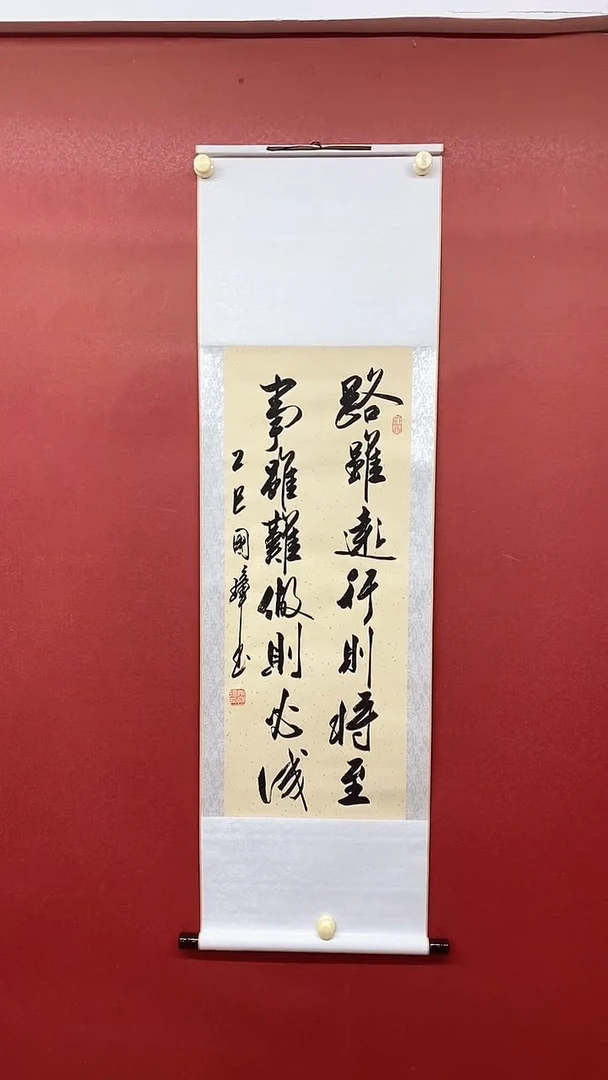 路雖遠行則將至
事雖難做則必成
乙巳國书